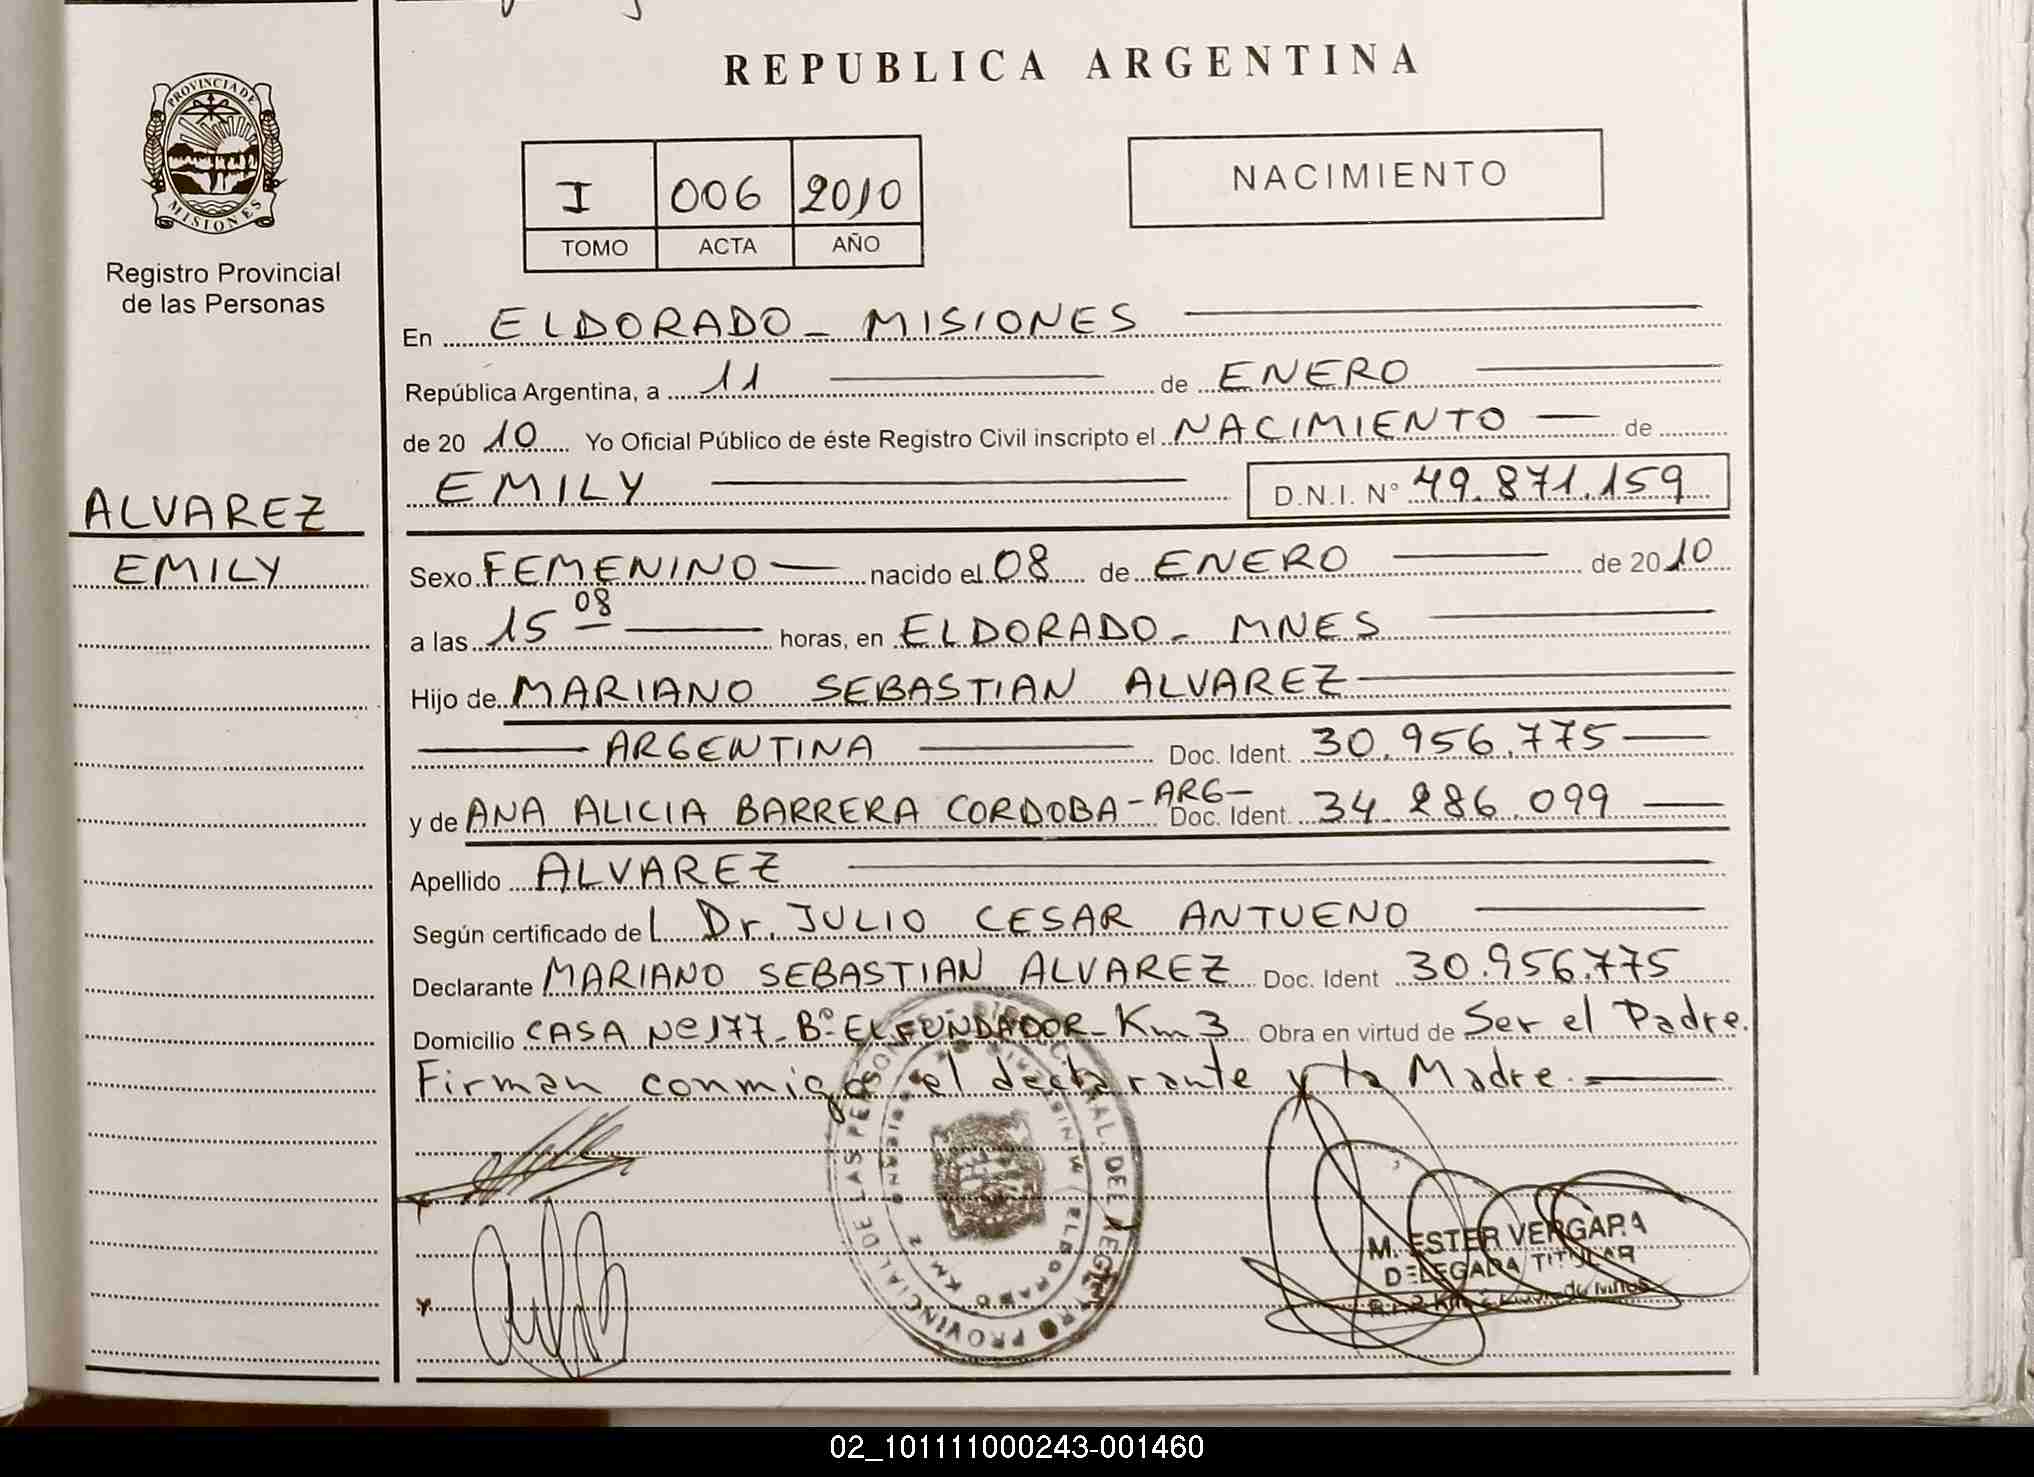 REPUBLICA ARGENTINA
PROVINCIA DE
MISIONES
Registro Provincial
de las Personas
I 006 2010
TOMO ACTA AÑO
NACIMIENTO
En ELDORADO - MISIONES
República Argentina, a 11 de ENERO
de 20 10 Yo Oficial Público de éste Registro Civil inscripto el NACIMIENTO de
EMILY D.N.I. N° 49.871.159
ALVAREZ
EMILY
Sexo FEMENINO nacido el 08 de ENERO de 2010
a las 15 08 horas, en ELDORADO - MNES
Hijo de MARIANO SEBASTIAN ALVAREZ
ARGENTINA Doc. Ident. 30.956.775
y de ANA ALICIA BARRERA CORDOBA - ARG - Doc. Ident. 34.286.099
Apellido ALVAREZ
Según certificado de L Dr. JULIO CESAR ANTUENO
Declarante MARIANO SEBASTIAN ALVAREZ Doc. Ident 30.956.775
Domicilio CASA Nº 177 - Bº EL FUNDADOR - Km 3 Obra en virtud de Ser el Padre.
Firman conmigo el declarante y la Madre.
PROVINCIAL DE LAS PERSONAS
ELDORADO KM 2
M. ESTER VERGARA
DELEGADA TITULAR
02_101111000243-001460